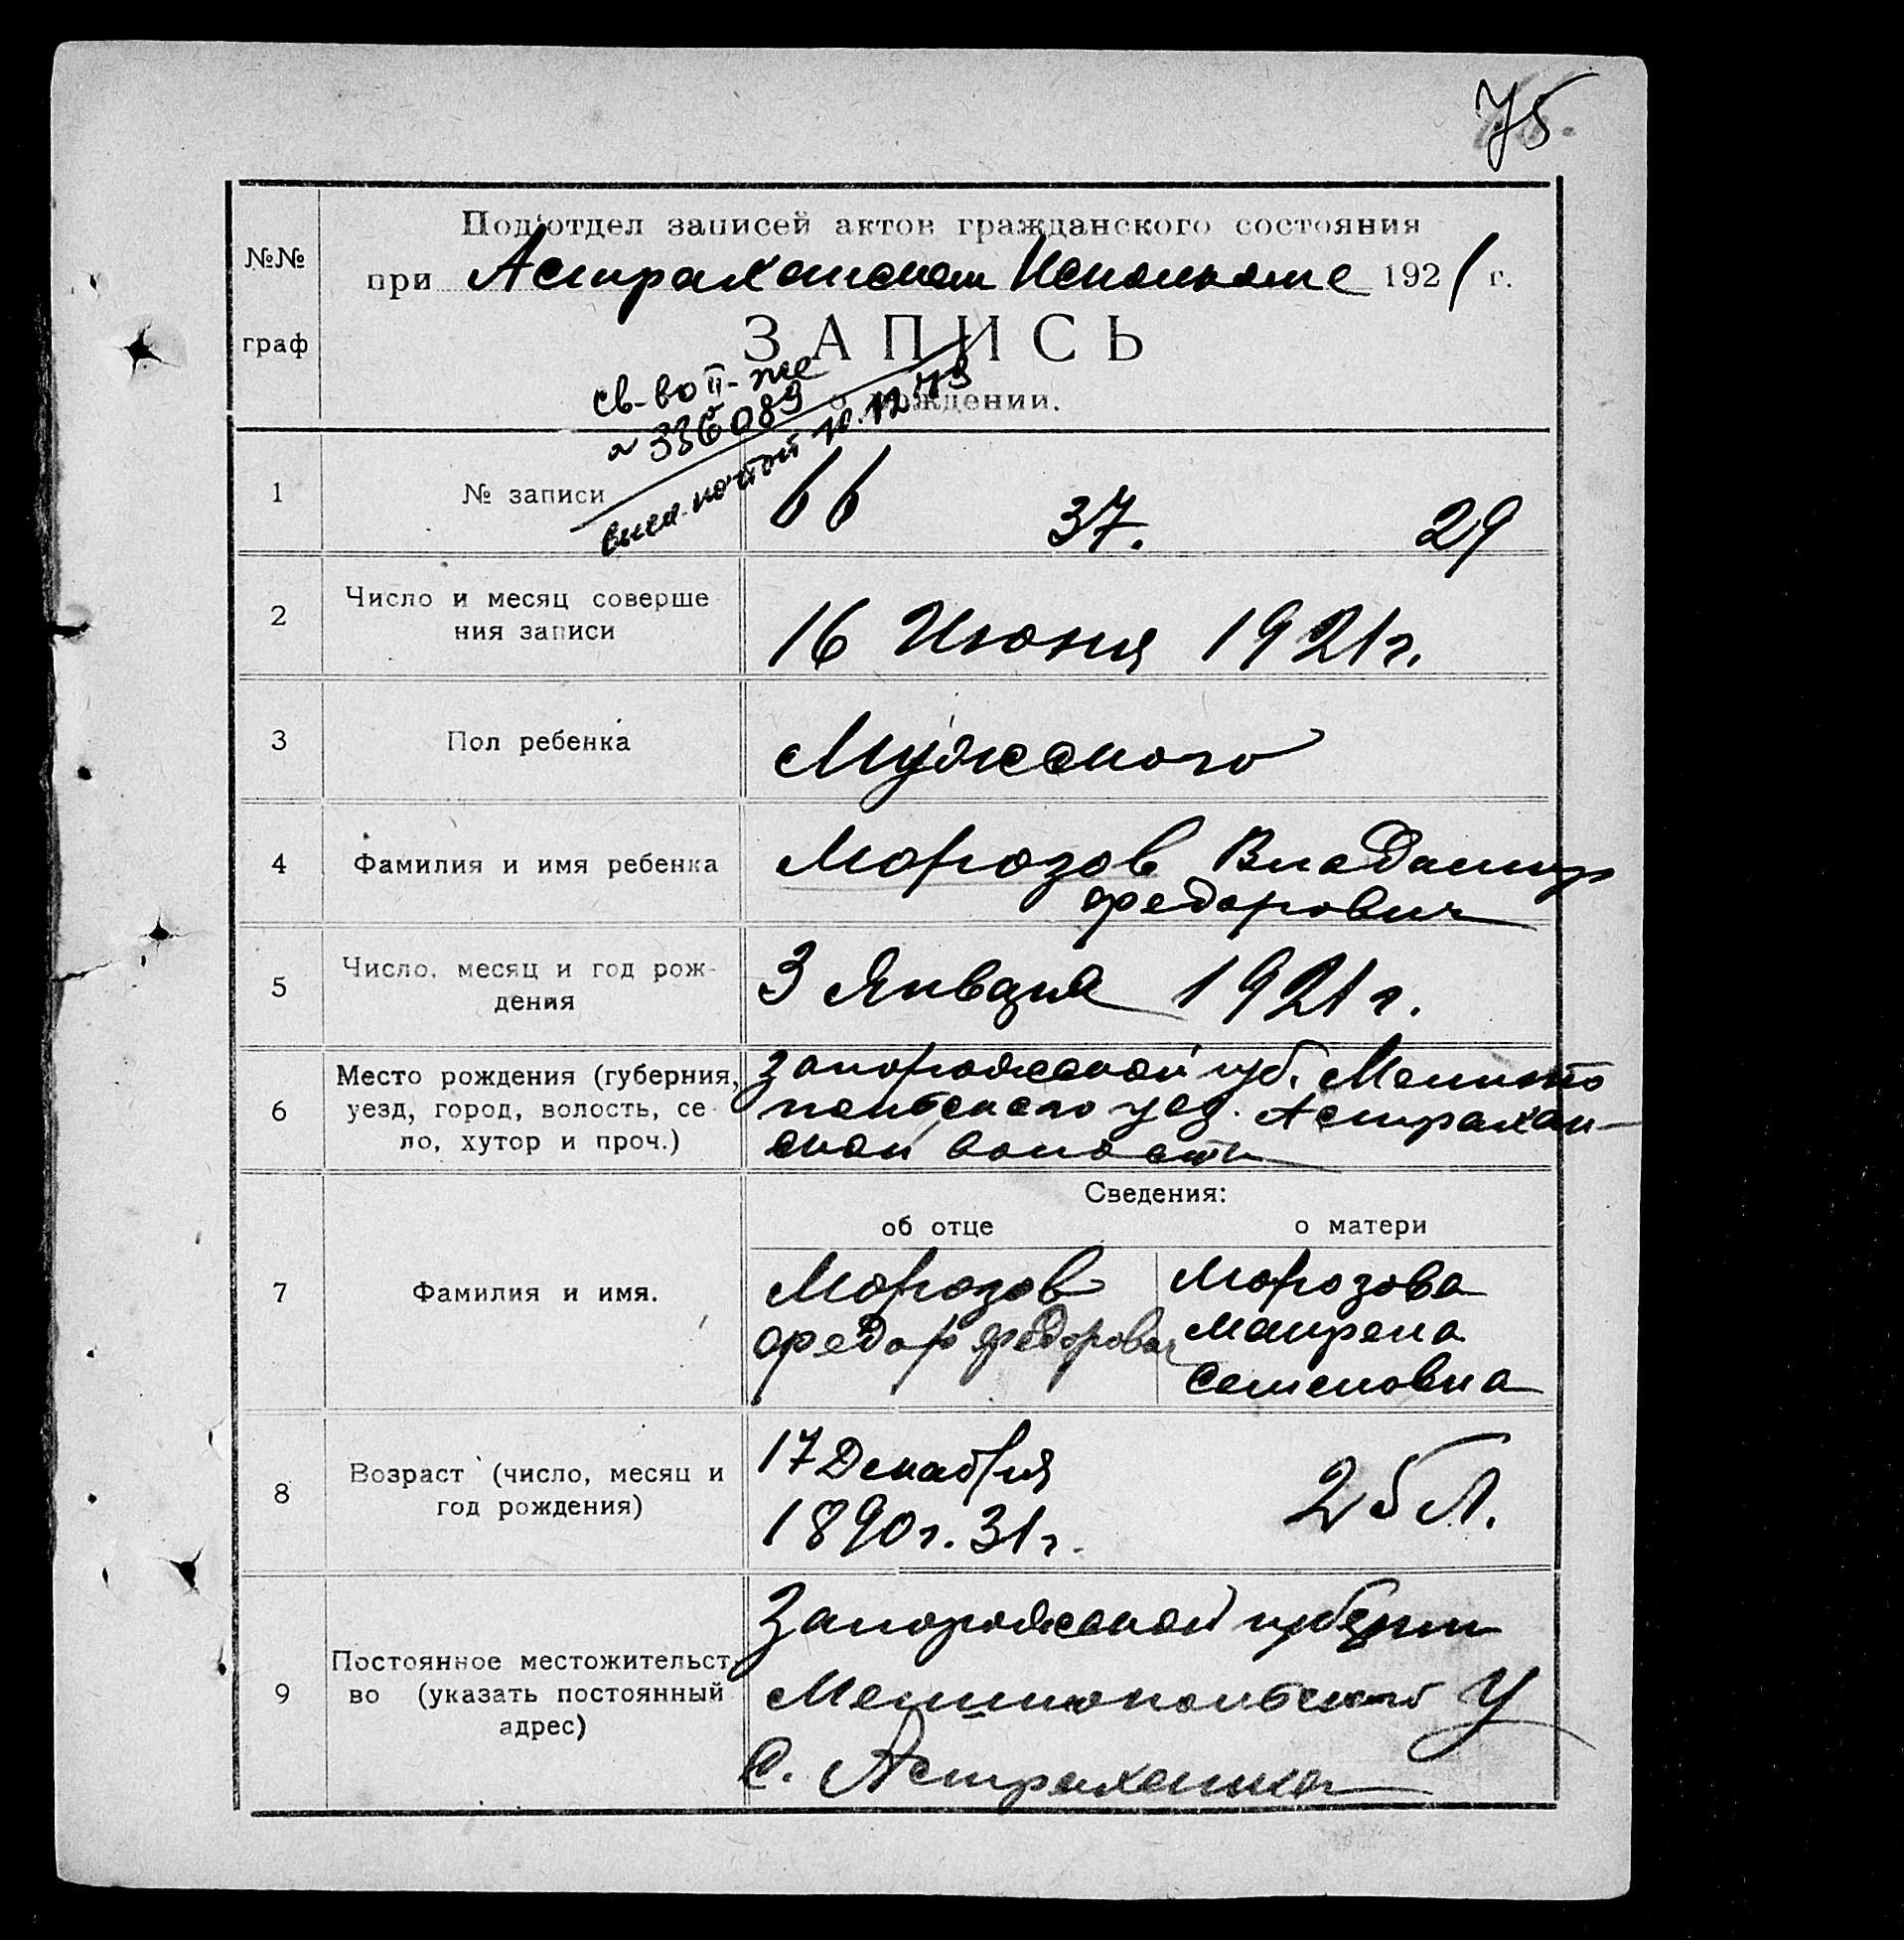 75.
№№ граф
Подотдел записей актов гражданского состояния
при Астраханском Исполкоме 1921 г.
ЗАПИСЬ
о рождении.
св-во II-же
№ 336089
высл. почтой 10.12.79
1 № записи 66 37. 29
2 Число и месяц соверше
ния записи
16 Июня 1921 г.
3 Пол ребенка Мужеского
4 Фамилия и имя ребенка Морозов Владимир
Федорович
5 Число, месяц и год рож-
дения
3 Января 1921 г.
6 Место рождения (губерния,
уезд, город, волость, се
ло, хутор и проч.)
Запорожской губ. Мелито
польского уезд. Астрахан-
ской волости
Сведения:
об отце о матери
7 Фамилия и имя.
Морозов
Федор Федорович
Морозова
Маирена
Семеновна
8 Возраст (число, месяц и
год рождения)
17 Декабря
1890 г. 31 г.
25 л.
9 Постоянное местожительст-
во (указать постоянный
адрес)
Запорожской губернии
Мелитопольского У
С. Астраханка